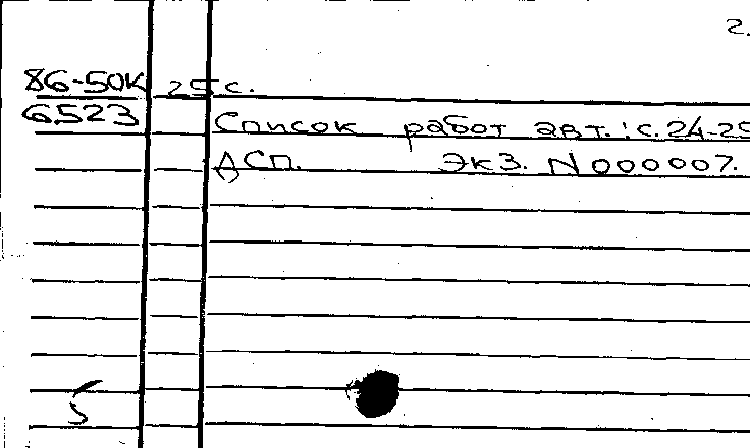 2.
86-50К 25 с.
6523
Список работ авт.: с. 24-25
ДСП. Экз. N 000007.
5